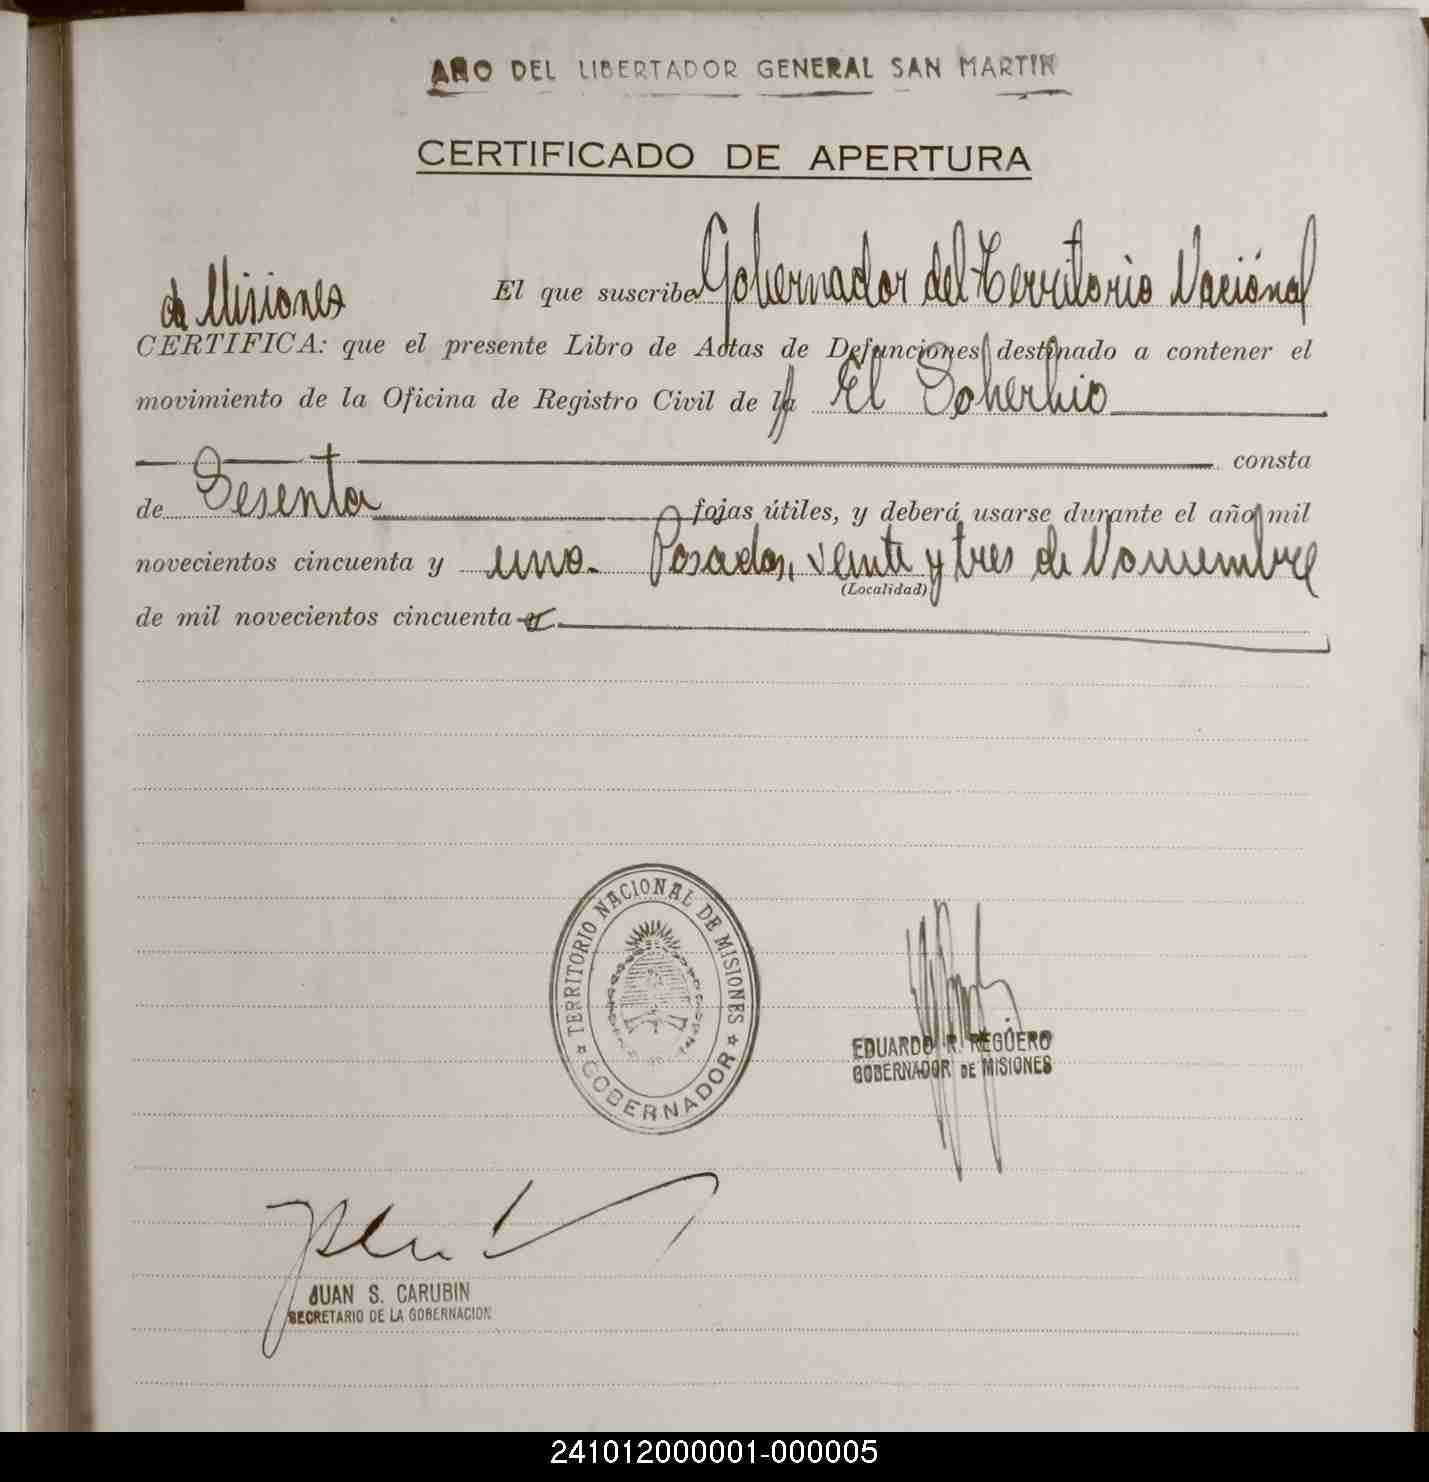 AÑO DEL LIBERTADOR GENERAL SAN MARTIN
CERTIFICADO DE APERTURA
El que suscribe Gobernador del Territorio Nacional
de Misiones
CERTIFICA: que el presente Libro de Actas de Defunciones destinado a contener el
movimiento de la Oficina de Registro Civil de la El Soberbio
consta
de Sesenta fojas útiles, y deberá usarse durante el año mil
novecientos cincuenta y uno. Posadas, veinte y tres de Noviembre
(Localidad)
de mil novecientos cincuenta y
TERRITORIO NACIONAL DE MISIONES
GOBERNADOR
EDUARDO R. REGÜERO
GOBERNADOR DE MISIONES
JUAN S. CARUBIN
SECRETARIO DE LA GOBERNACION
241012000001-000005